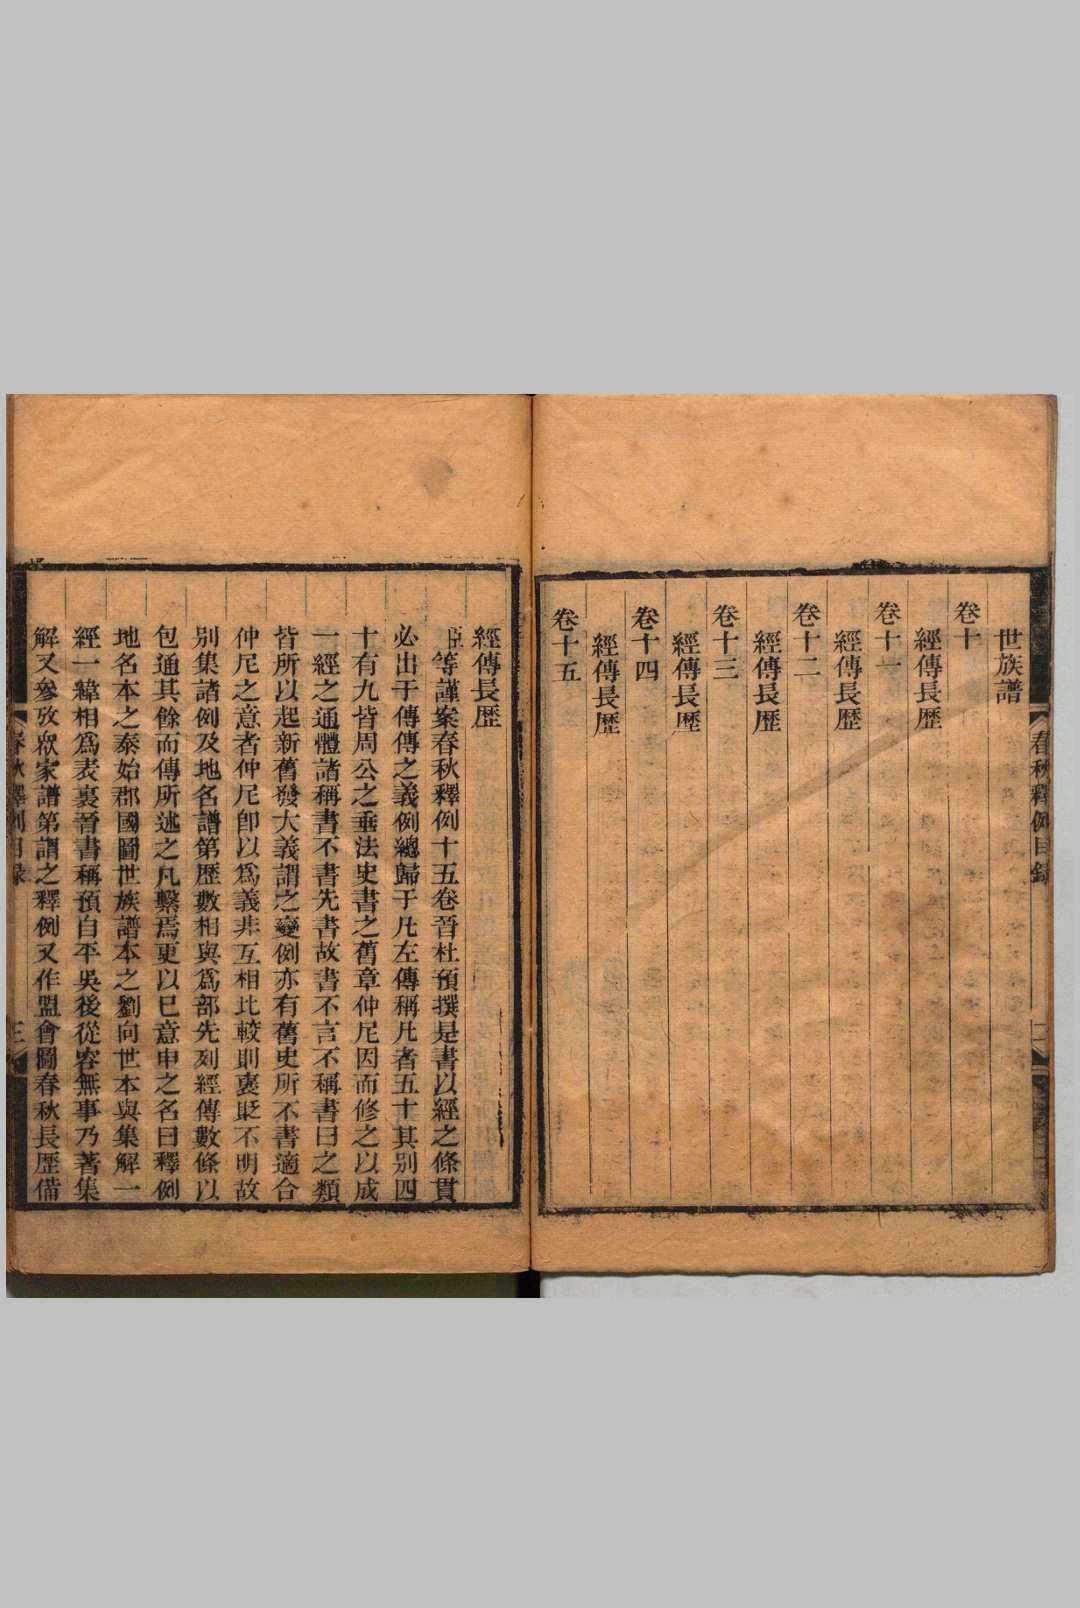 世族譜
卷十
經傳長歷
卷十一
經傳長歷
卷十二
經傳長歷
卷十三
經傳長歷
卷十四
經傳長歷
卷十五
春秋釋例目錄
二
經傳長歷
臣等謹案春秋釋例十五卷晉杜預撰是書以經之條貫
必出于傳傳之義例總歸于凡左傳稱凡者五十其别四
十有九皆周公之垂法史書之舊章仲尼因而修之以成
一經之通體諸稱書不書先書故書不言不稱書曰之類
皆所以起新舊發大義謂之變例亦有舊史所不書適合
仲尼之意者仲尼卽以爲義非互相比較則褒貶不明故
别集諸例及地名譜第歷數相與爲部先列經傳數條以
包通其餘而傳所述之凡繫焉更以已意申之名曰釋例
地名本之泰始郡國圖世族譜本之劉向世本與集解一
經一緯相爲表裏晉書稱預自平吳後從容無事乃著集
解又參攷衆家譜第謂之釋例又作盟會圖春秋長歷備
春秋釋例目錄
三